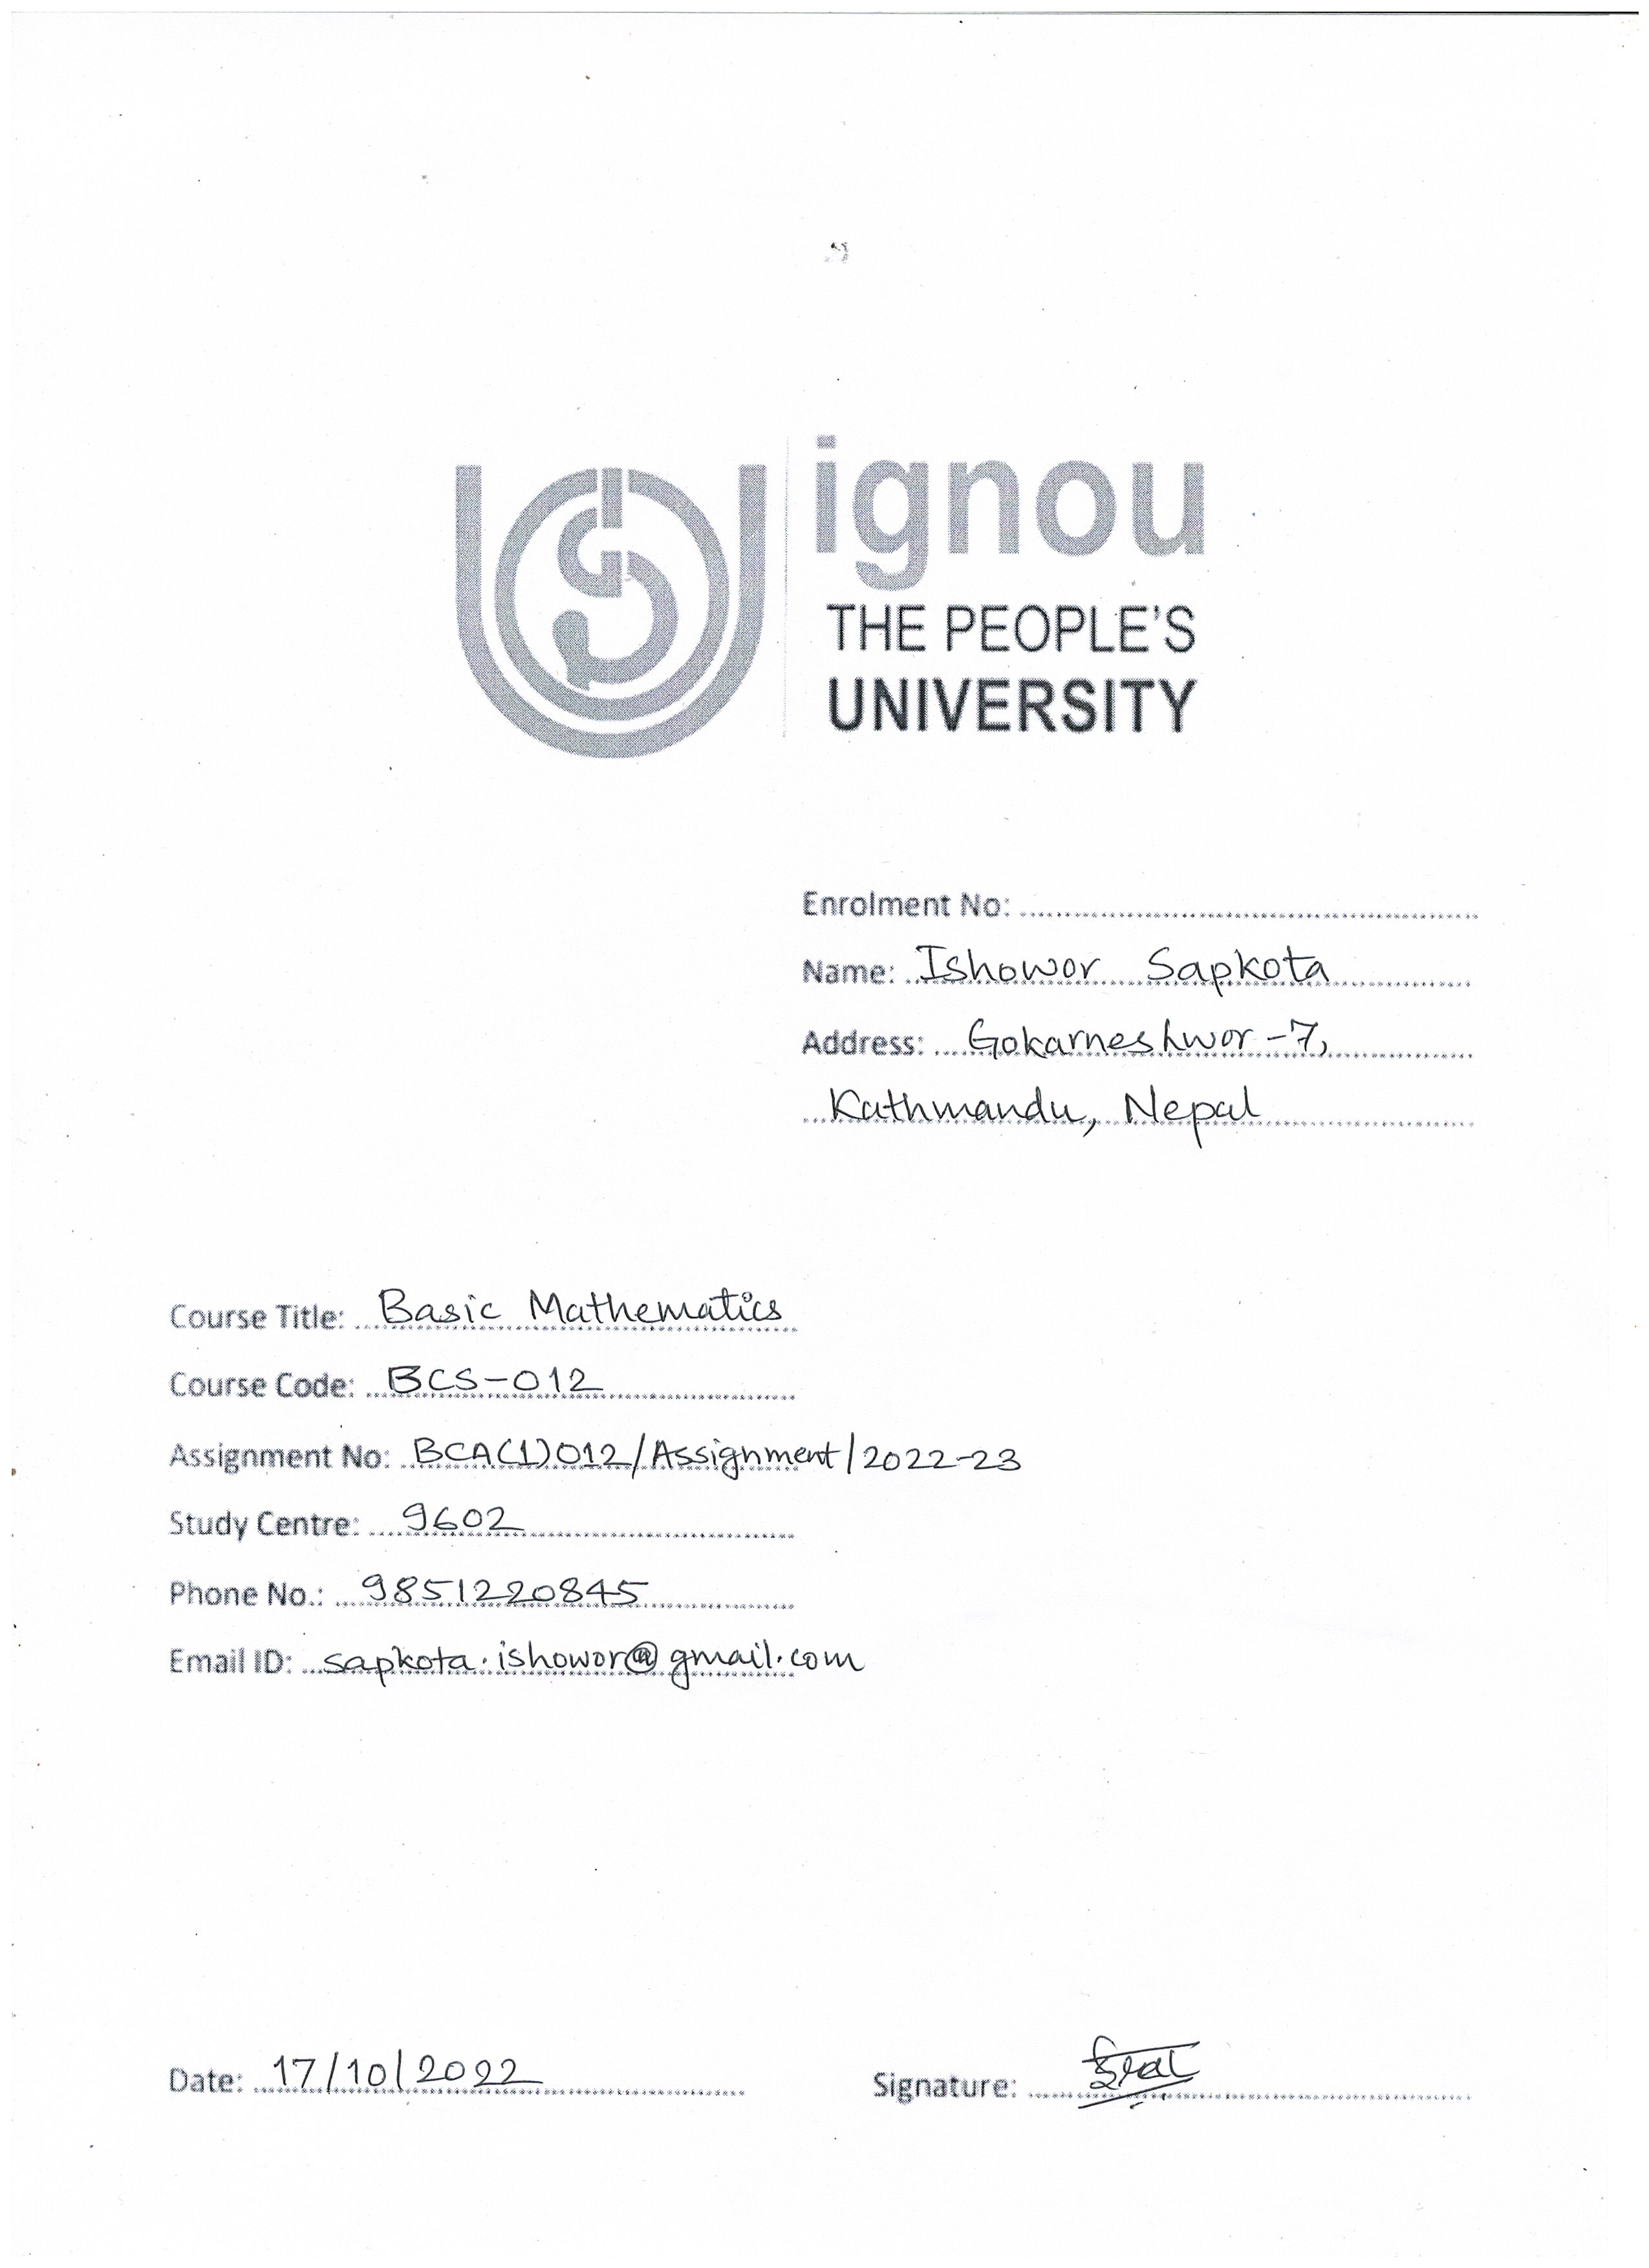 ignou
THE PEOPLE'S
UNIVERSITY
Enrolment No:
Name: Ishowor Sapkota
Address: Gokarneshwor-7,
Kathmandu, Nepal
Course Title: Basic Mathematics
Course Code: BCS-012
Assignment No: BCA(1)012/Assignment/2022-23
Study Centre: 9602
Phone No.: 9851220845
Email ID: sapkota.ishowor@gmail.com
Date: 17/10/2022
Signature: